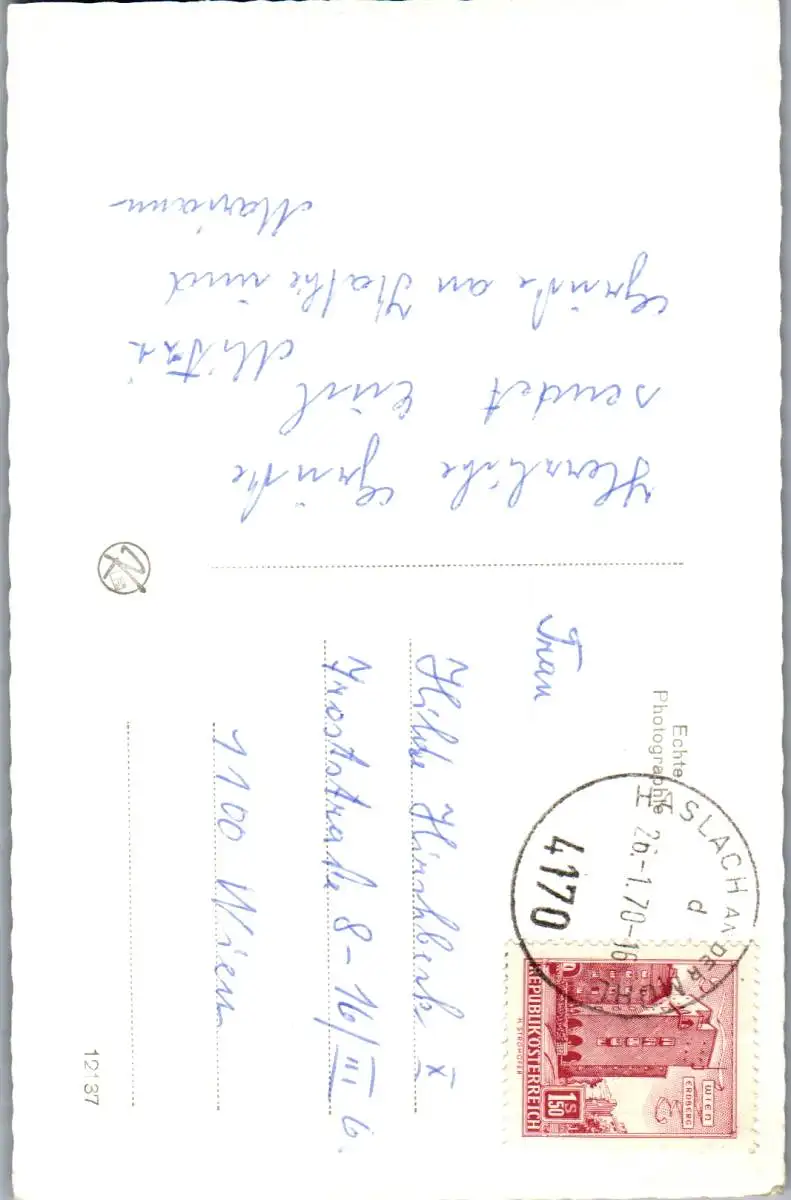 Herzliche Grüße
sendet Euch
Mitzi
Grüße an Kathe und
Mariann
Echte
Photographie
HASLACH AN DER MÜHL
26.-1.70-16
d
4170
WIEN
ERDBERG
REPUBLIK ÖSTERREICH
S 1.50
H. STROHOFER
Frau
Hilde Hirschberk X
Troststraße 8-16/III 6.
1100 Wien
12137